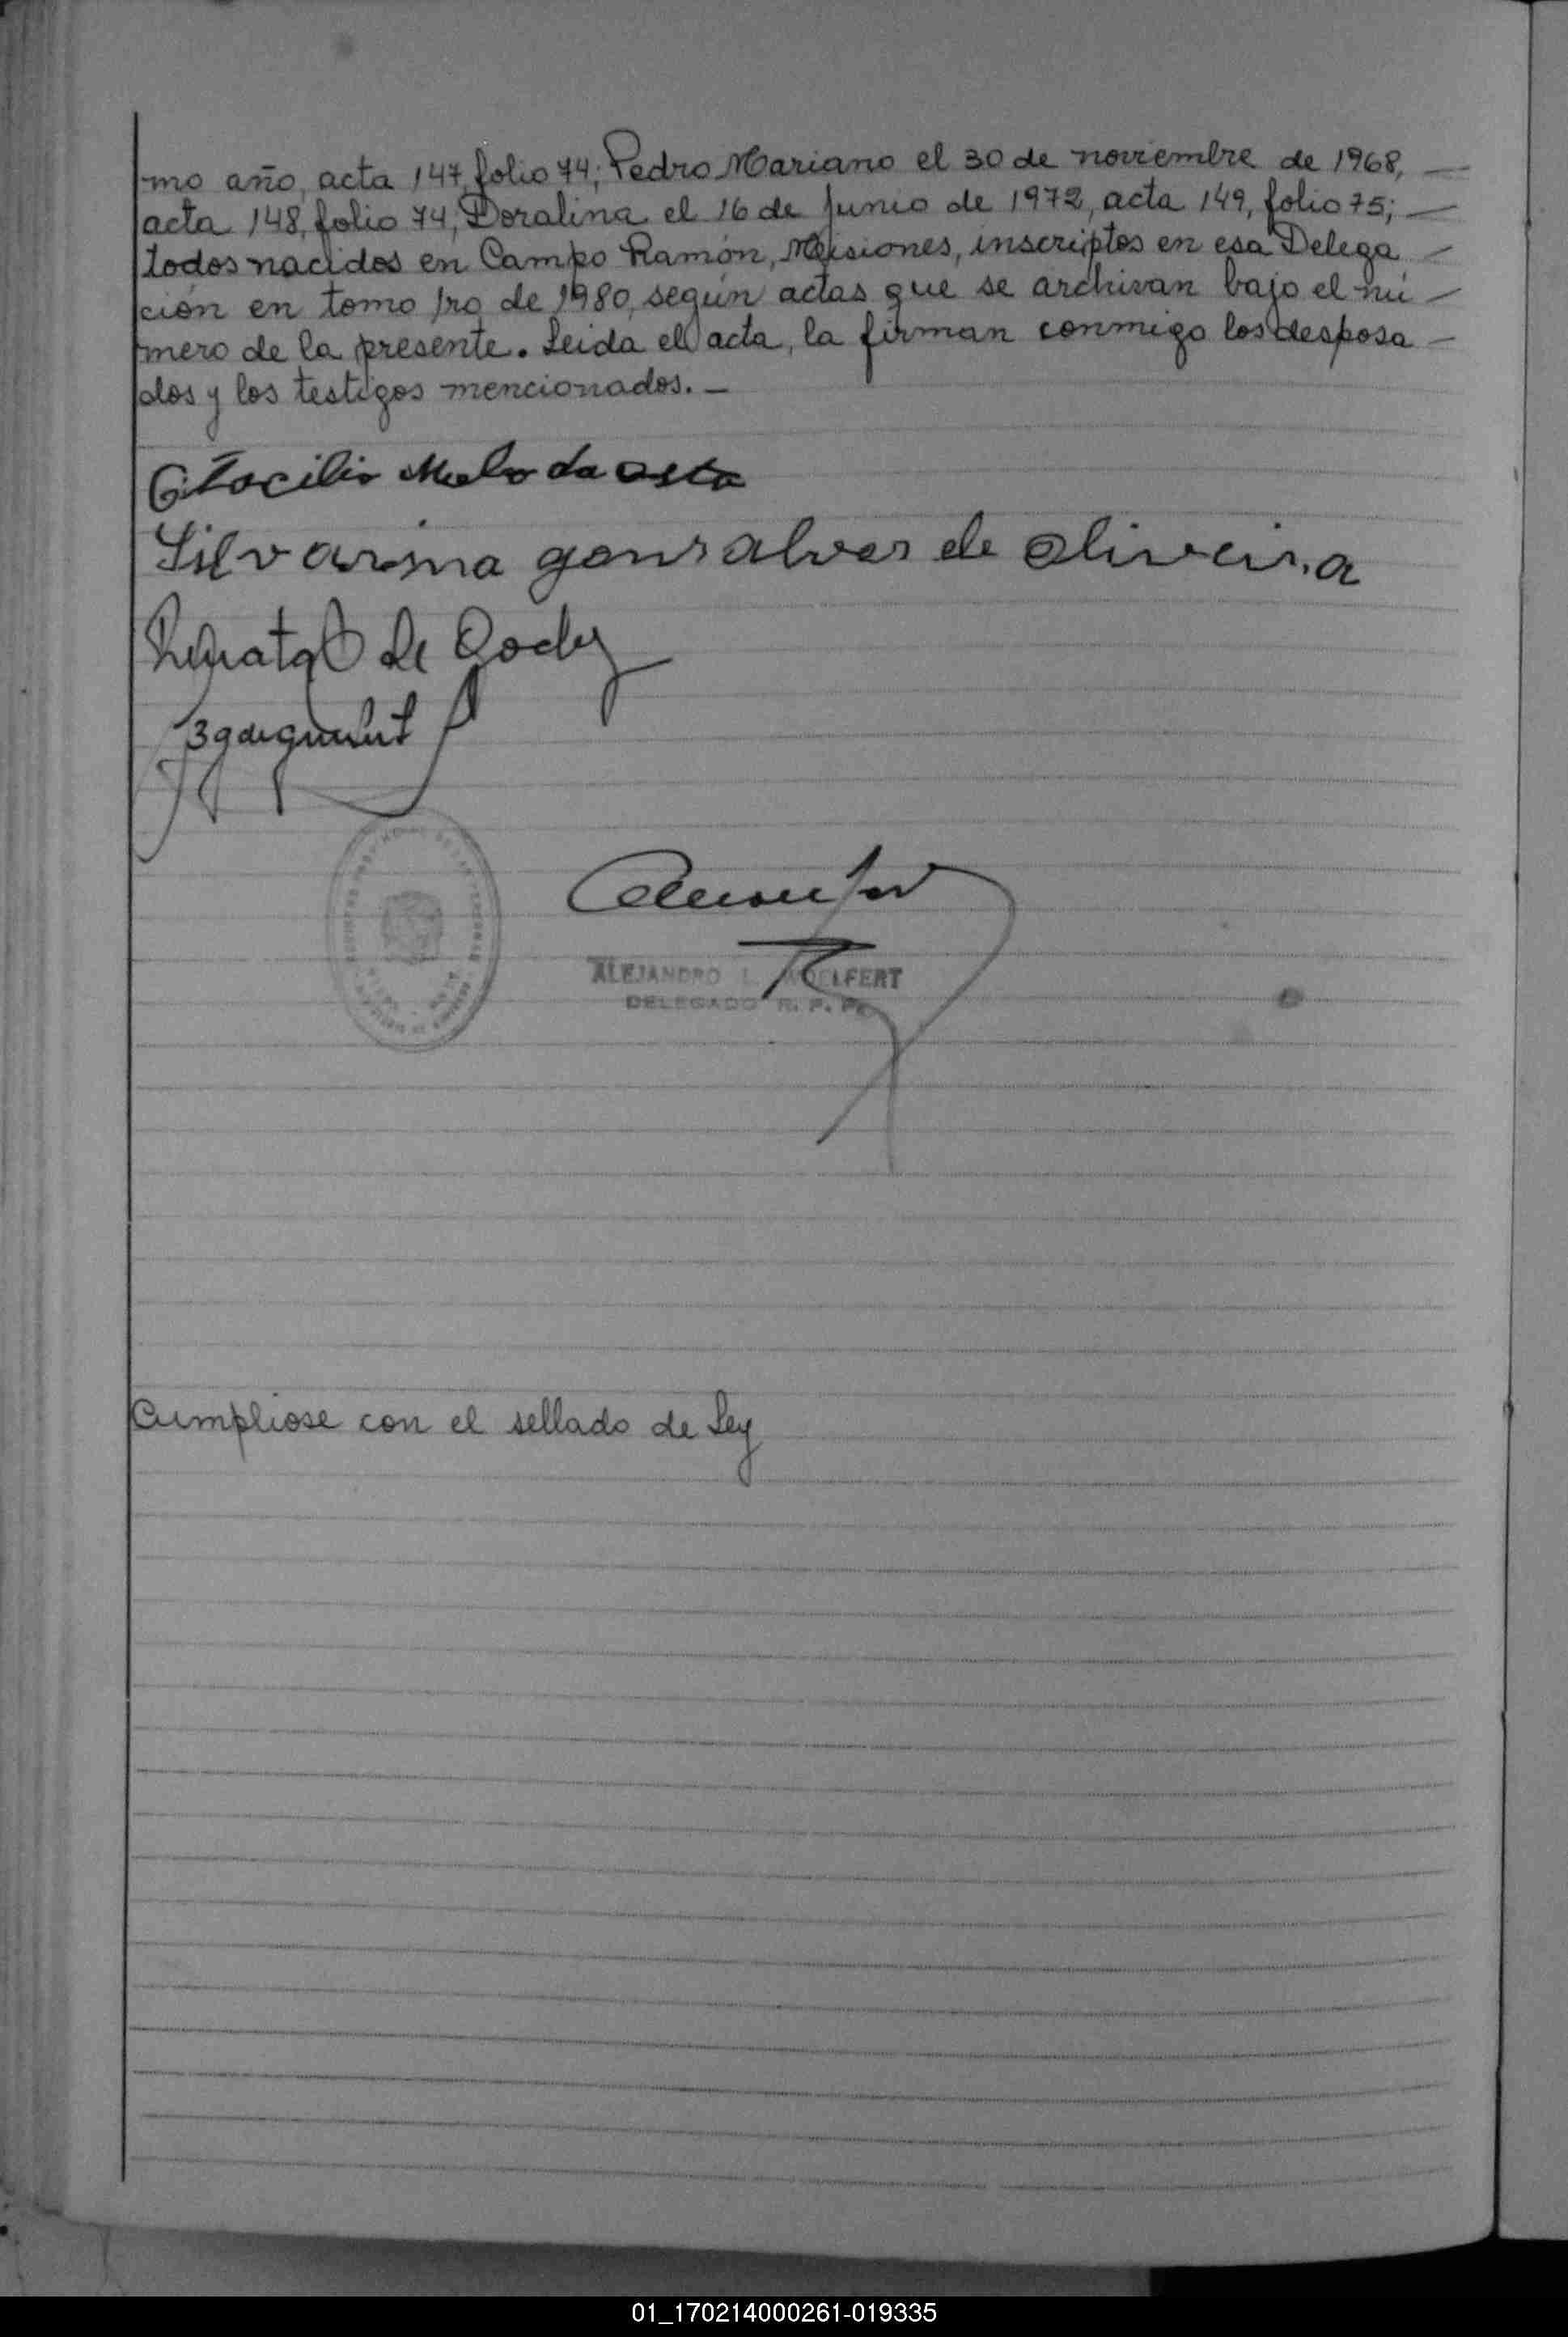 mo año, acta 147, folio 74; Pedro Mariano el 30 de noviembre de 1968, —
acta 148, folio 74; Doralina el 16 de Junio de 1972, acta 149, folio 75; —
todos nacidos en Campo Ramón, Misiones, inscriptos en esa Delega —
ción en tomo 1ro de 1980, según actas que se archivan bajo el nú —
mero de la presente. Leida el acta, la firman conmigo los desposa —
dos y los testigos mencionados. —
da
Silvarina gonsalves de oliveira
de
ALEJANDRO L.
DELEGADO R. P. P.
Cumpliose con el sellado de Ley
01_170214000261-019335